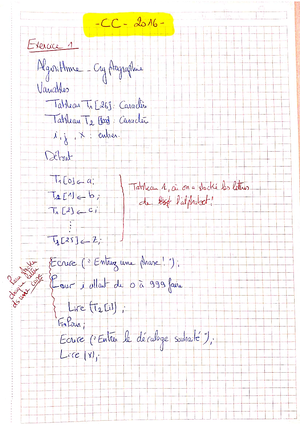 -CC- 2016-
Exercice 1
Algorithme - Cryptographie
Variables
Tableau T1 [26] : Caractère
Tableau T2 : Caractère
i, j, x : entier
Début
T1[0] ← a;
T1[1] ← b;
T1[2] ← c;
⋮
T1[25] ← z;
Tableau 1, où on a stocké les lettres
de l'alphabet!
Ecrire ("Entrez une phrase!");
Pour
chaque lettre
une case
Pour i allant de 0 à 999 faire
Lire (T2[i]);
FinPour;
Ecrire ("Entrer le décalage souhaité");
Lire (x);